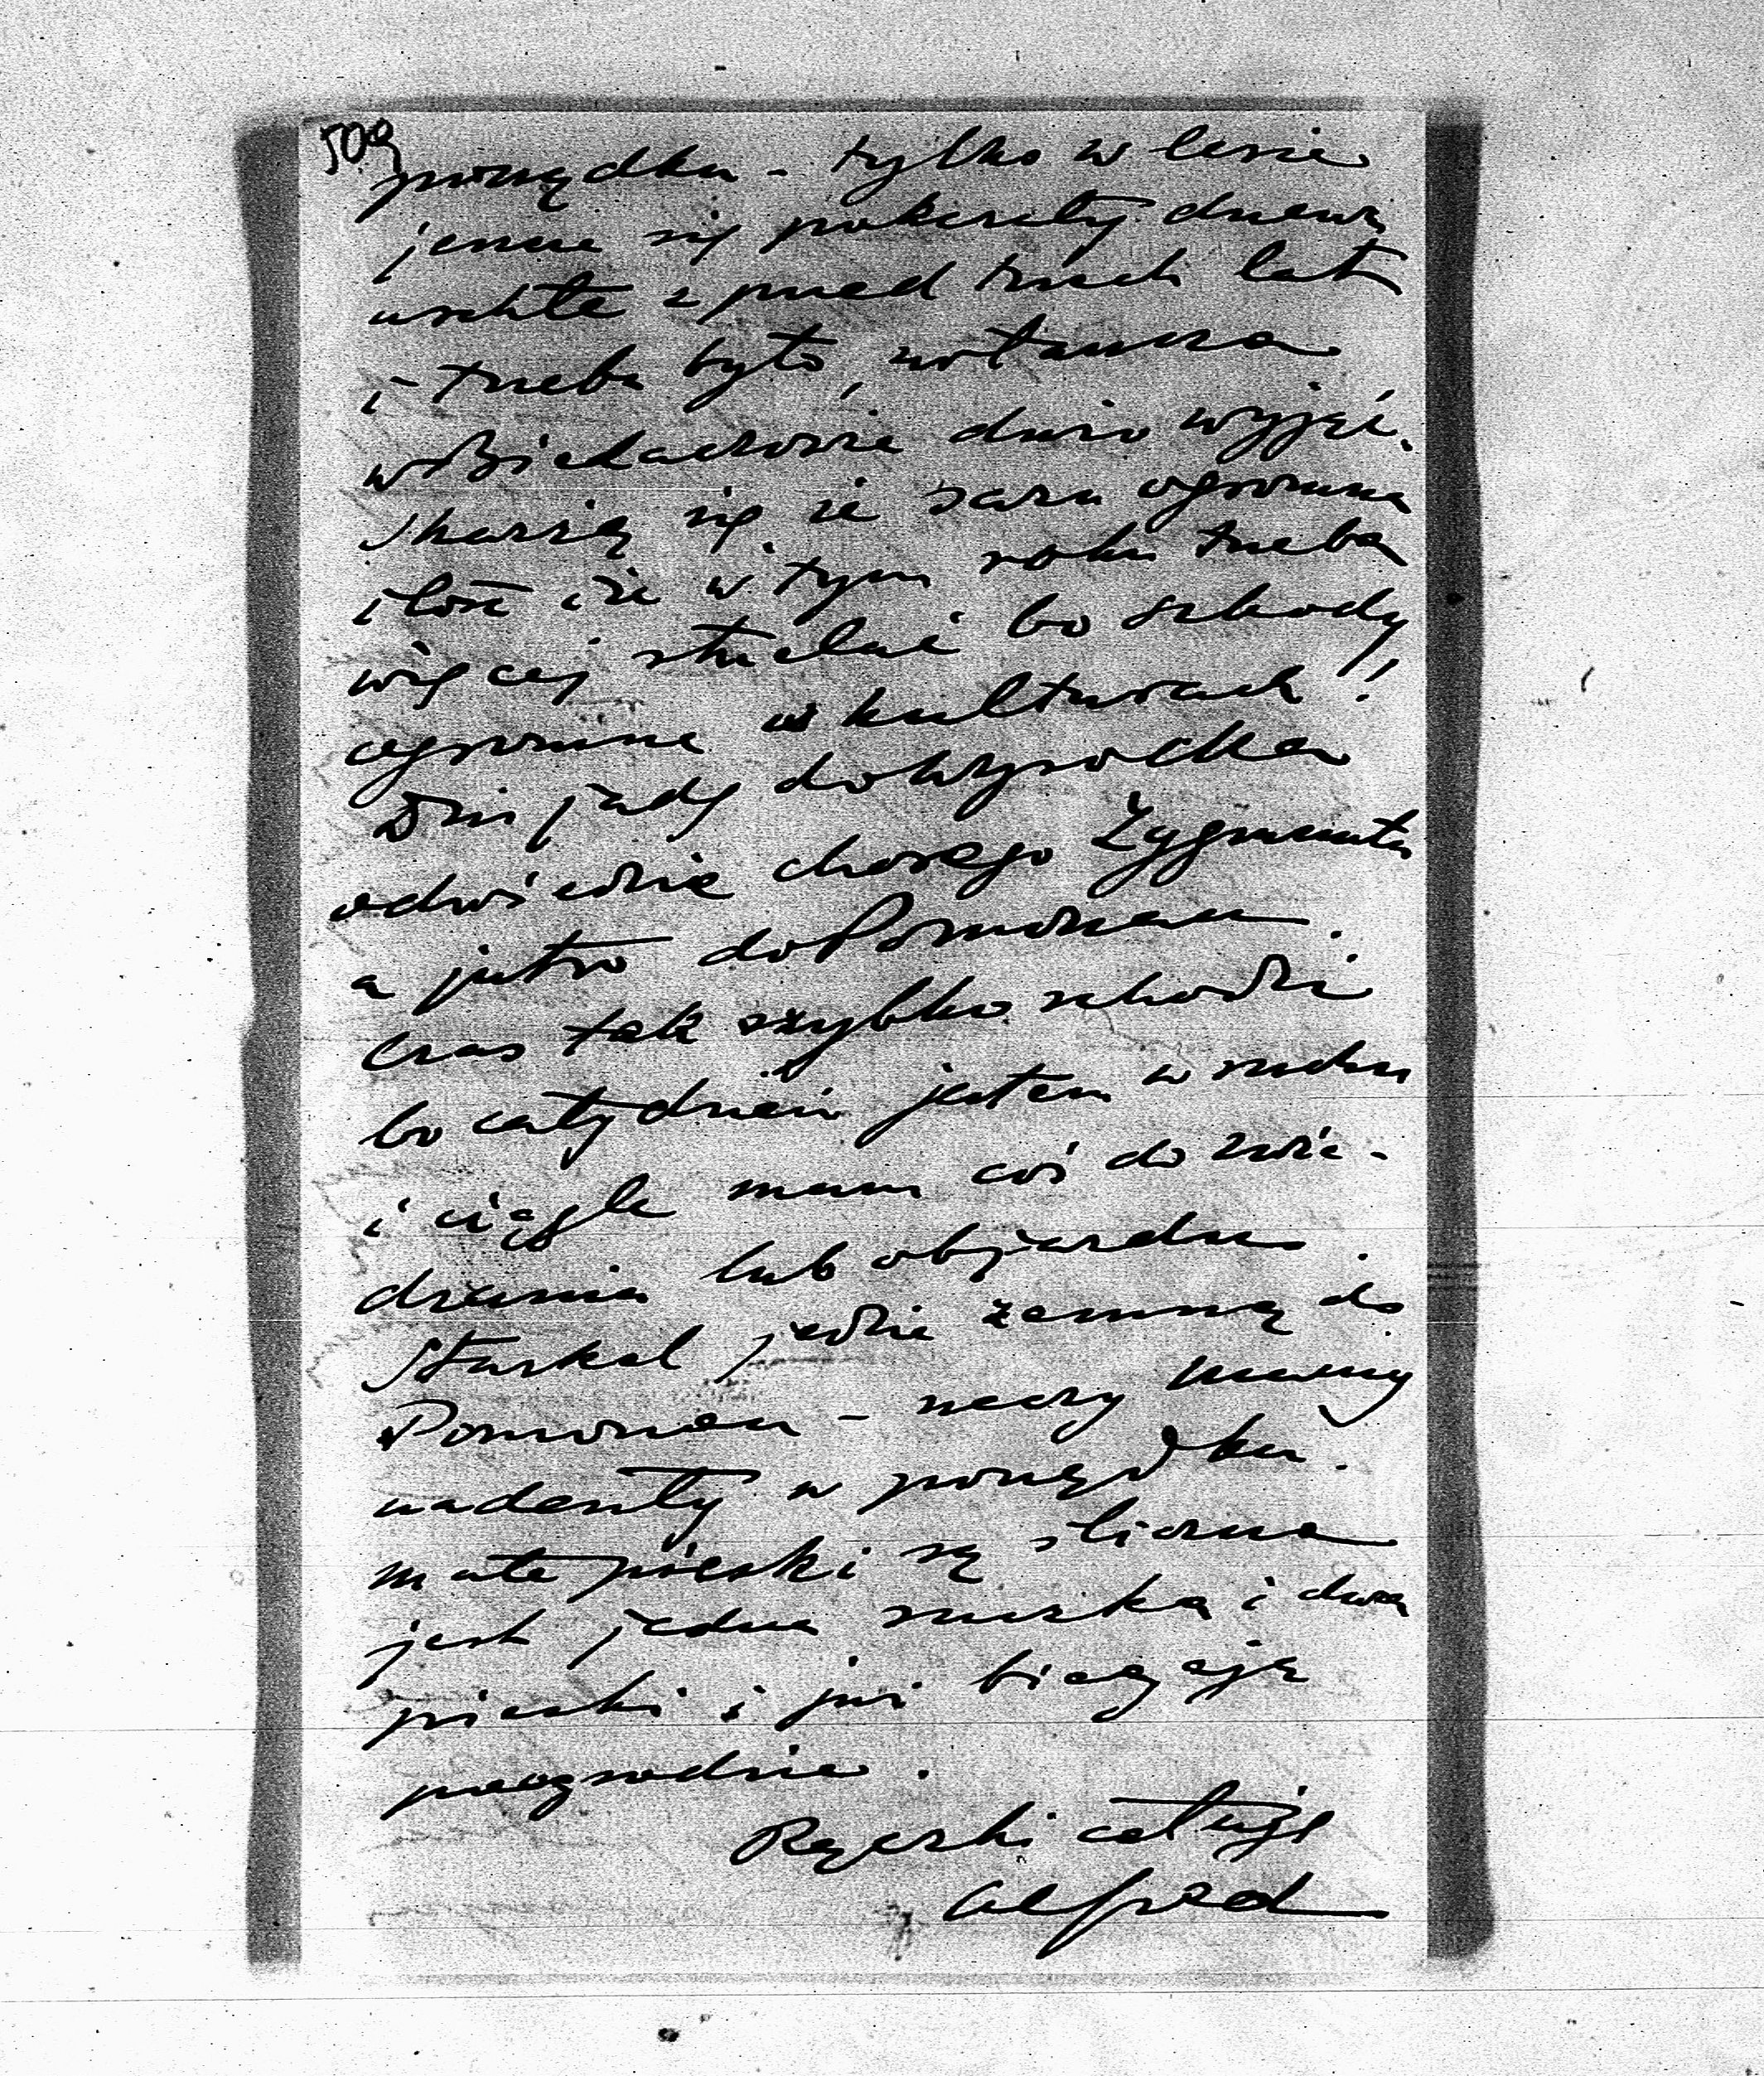 509
porządku - tylko w lesie
jeszcze się pokazały drzewa
uschłe z przed trzech lat
i trzeba było, zwłaszcza
w Biedaczowie dużo wyjąć.
Skarżą się że sarn ogromna
ilość i że w tym roku trzeba
więcej strzelać bo szkody
ogromne w kulturach!
Dziś jadę do Wysocka
odwiedzić chorego Zygmunta
a jutro do Pomorzan.
Czas tak szybko schodzi
bo cały dzień jestem w ruchu
i ciągle mam coś do zwie-
dzania lub objazdu.
Starkel jedzie zemną do
Pomorzan - rzeczy Mamy
nadeszły w porządku.
Małe pieski są śliczne
jest jedna suczka i dwa
pieski i już biegają
po ogrodzie.
Rączki całuję
Alfred